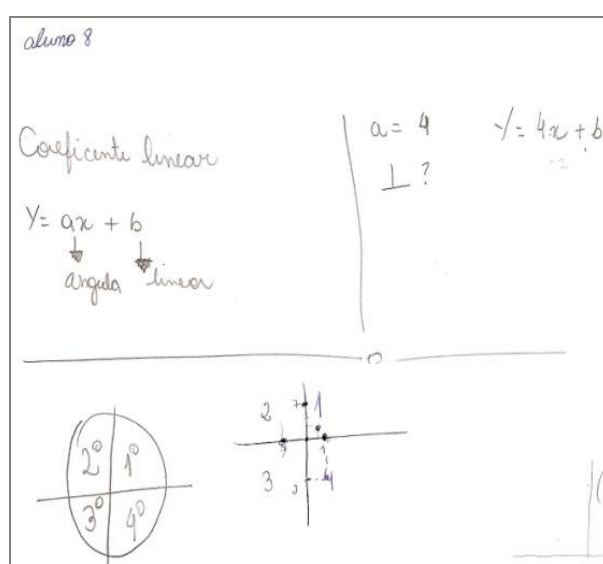 aluno 8
Coeficente linear
Y= ax + b
angula linear
a= 4 Y= 4x + b
⊥ ?
2º 1º
3º 4º
2 7 1
3 4